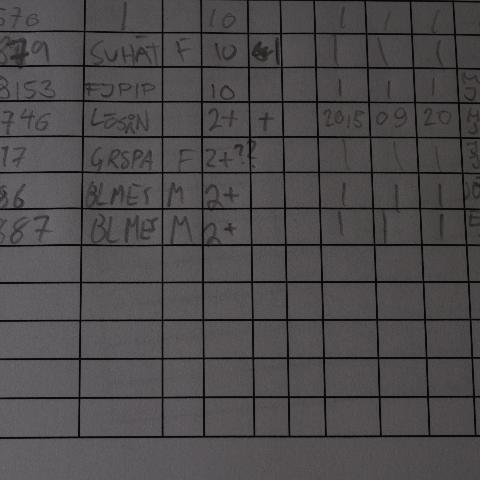 570 | 10 | | |
879 SUHAT F 10 | | |
8153 FJPIP 10 | | |
746 LESIN 2+ + 2015 09 20
17 GRSPA F 2+?? | | |
86 BLMES M 2+ | | |
887 BLMES M 2+ | | |